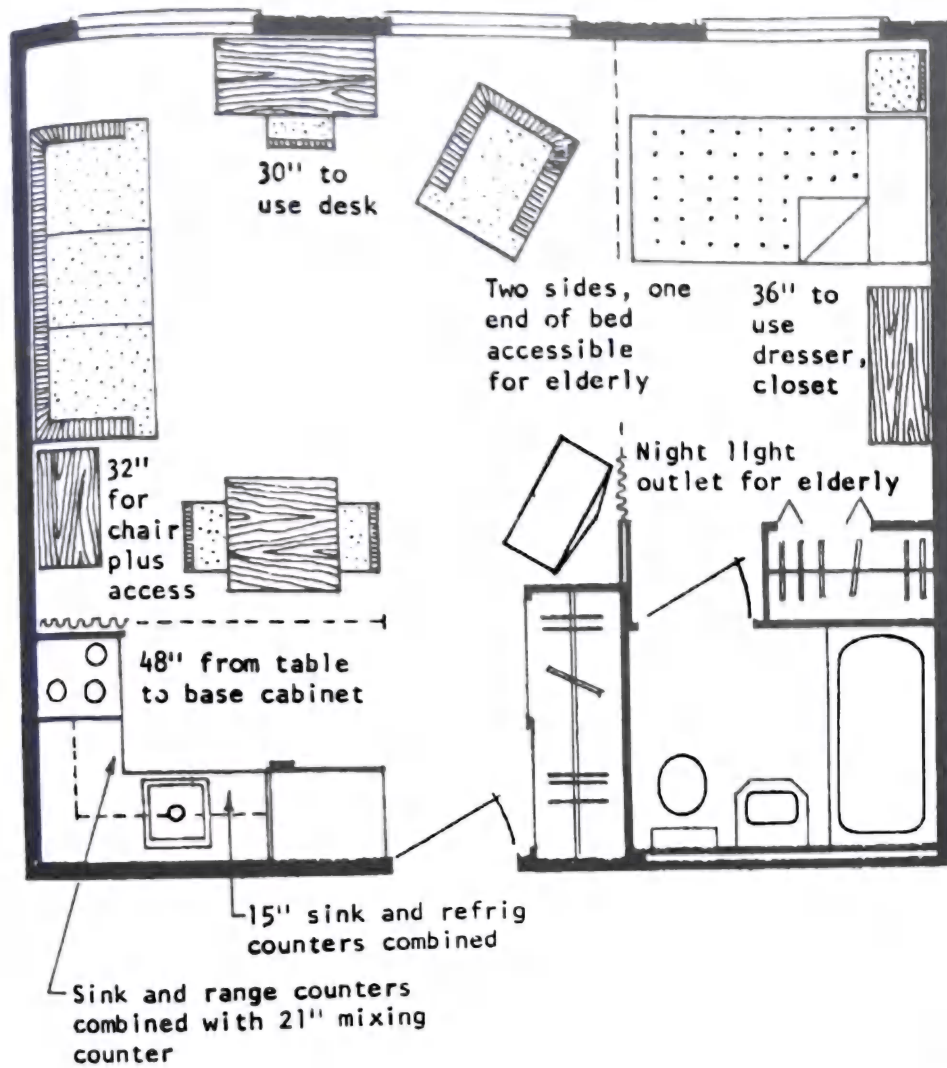 30" to
use desk
Two sides, one
end of bed
accessible
for elderly
36" to
use
dresser,
closet
32"
for
chair
plus
access
Night light
outlet for elderly
48" from table
to base cabinet
15" sink and refrig
counters combined
Sink and range counters
combined with 21" mixing
counter